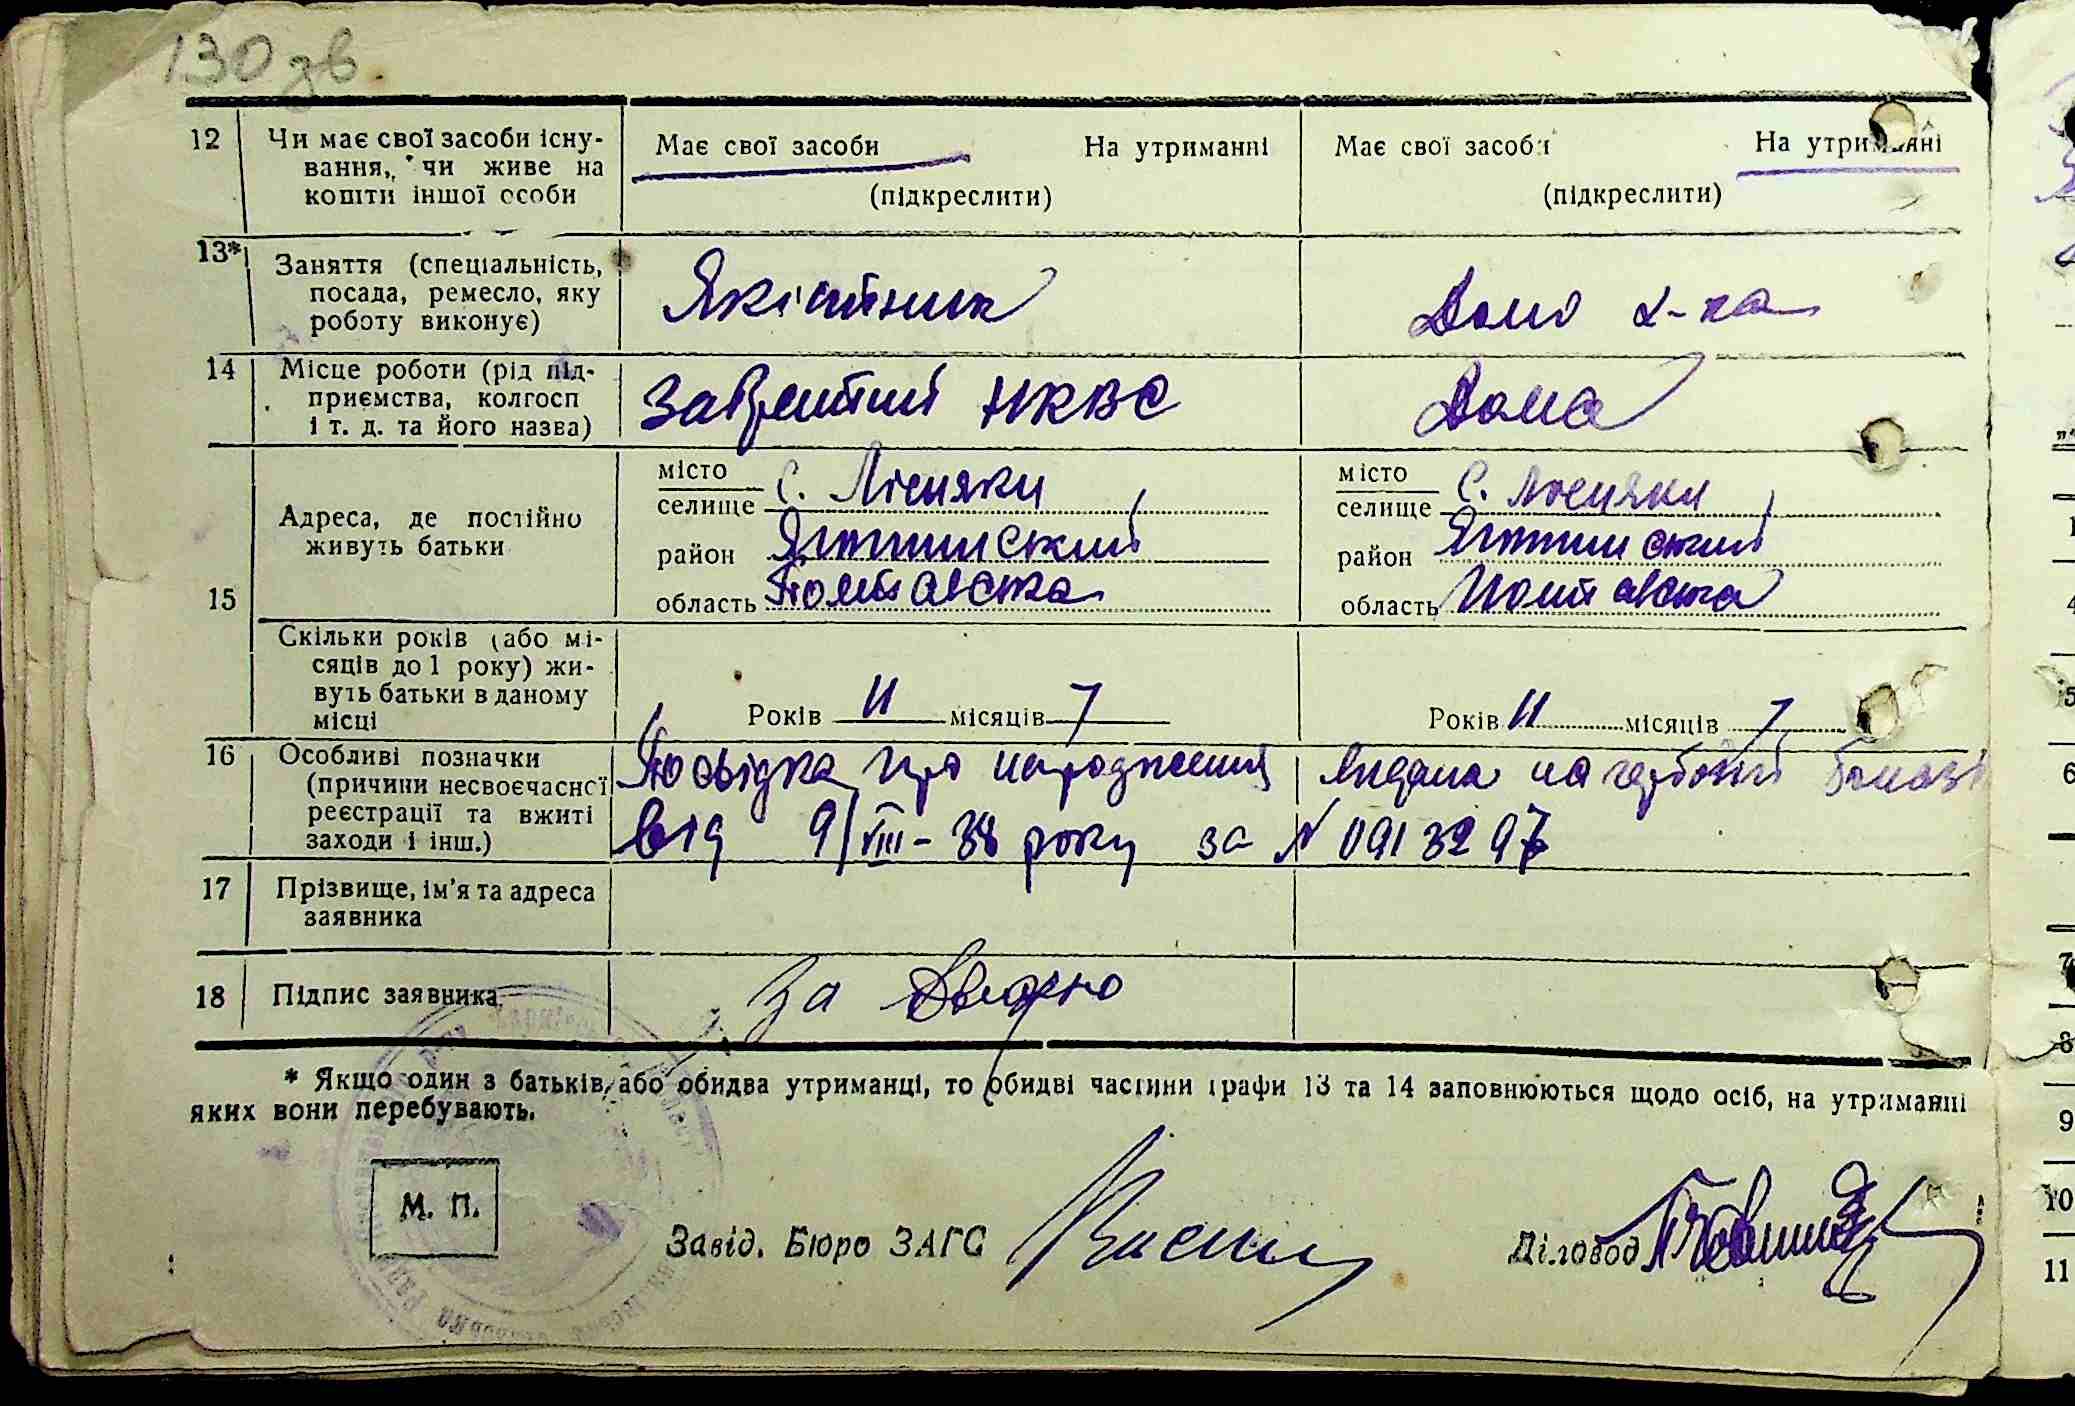 130 зв.
12 Чи має свої засоби існу-
вання, чи живе на
кошти іншої особи
Має свої засоби На утриманні
(підкреслити)
Має свої засоби На утриманні
(підкреслити)
13* Заняття (спеціальність,
посада, ремесло, яку
роботу виконує)
Домо г-ка
14 Місце роботи (рід під-
приємства, колгосп
і т. д. та його назва)
НКВС
Дома
15
Адреса, де постійно
живуть батьки
місто
селище с. Лісняки
район Яготинський
область Полтавська
місто
селище с. Лісняки
район Яготинський
область Полтавська
Скільки років (або мі-
сяців до 1 року) жи-
вуть батьки в даному
місці
Років 11 місяців 7
Років 11 місяців 7
16 Особливі позначки
(причини несвоєчасної
реєстрації та вжиті
заходи і інш.)
Посвідка про народження видана на гербовій бомазі
від 9/VIII-38 року за № 091329
17 Прізвище, ім'я та адреса
заявника
18 Підпис заявника
За
* Якщо один з батьків, або обидва утриманці, то обидві частини графи 13 та 14 заповнюються щодо осіб, на утриманні
яких вони перебувають.
М. П.
Завід. Бюро ЗАГС
Діловод
5
6
7
8
9
10
11